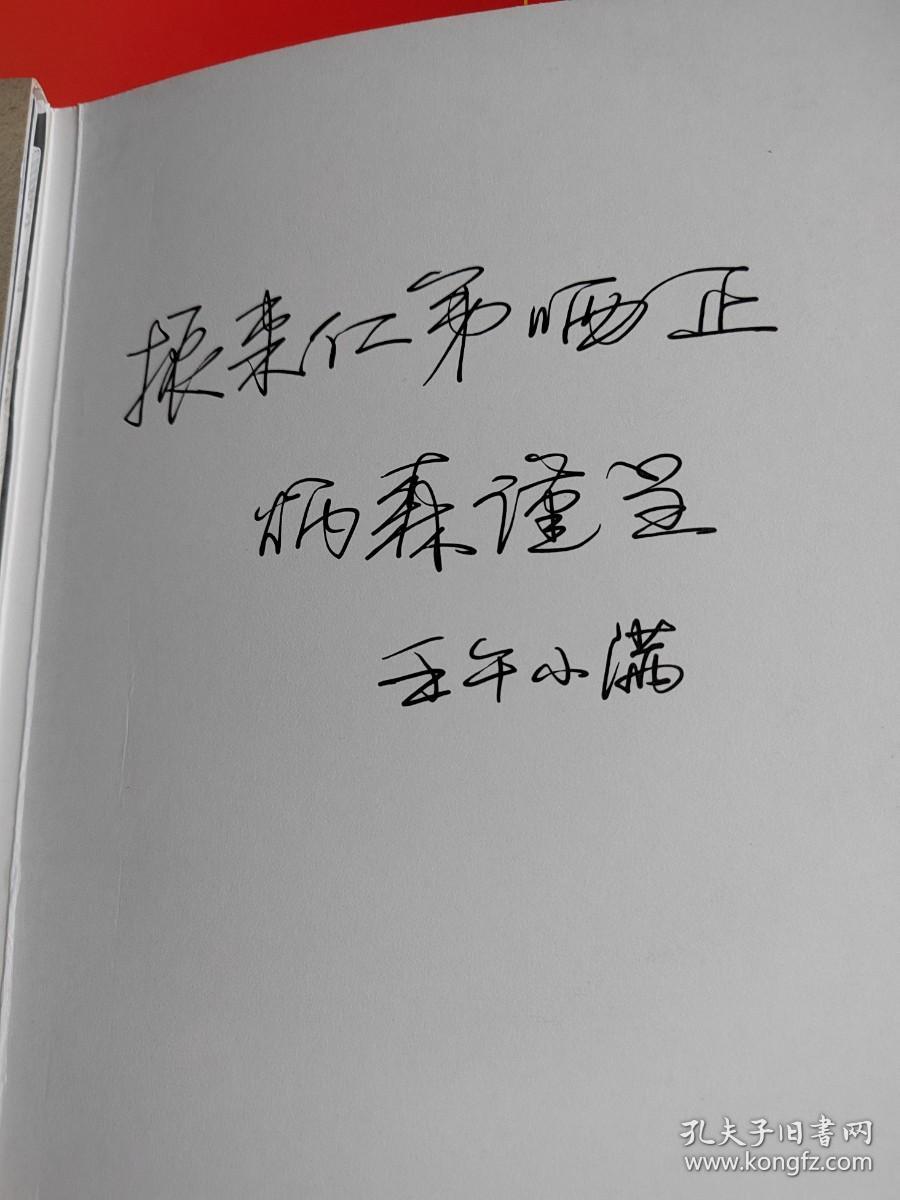 振来仁弟哂正
炳森谨呈
壬午小满
孔夫子旧书网
www.kongfz.com